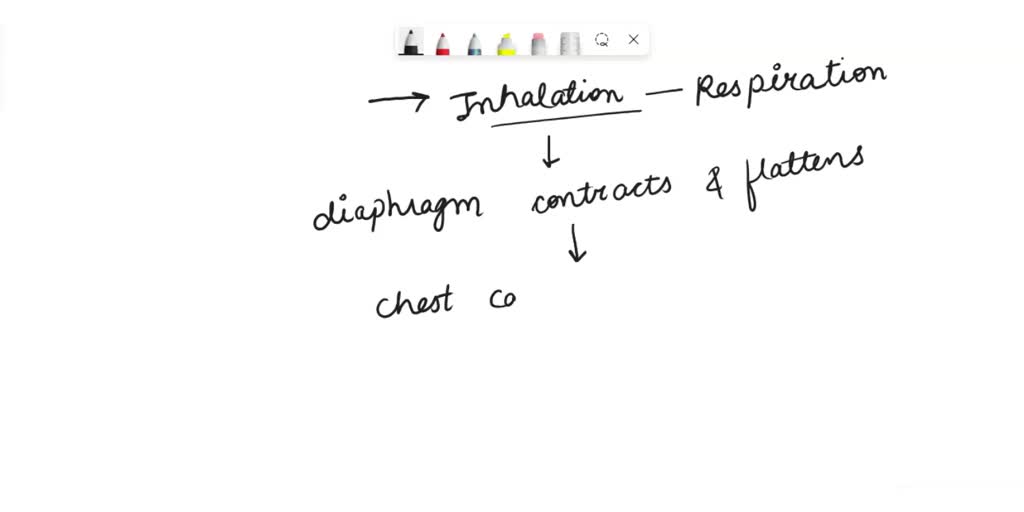 → Inhalation — Respiration
↓
diaphragm contracts & flattens
↓
chest co